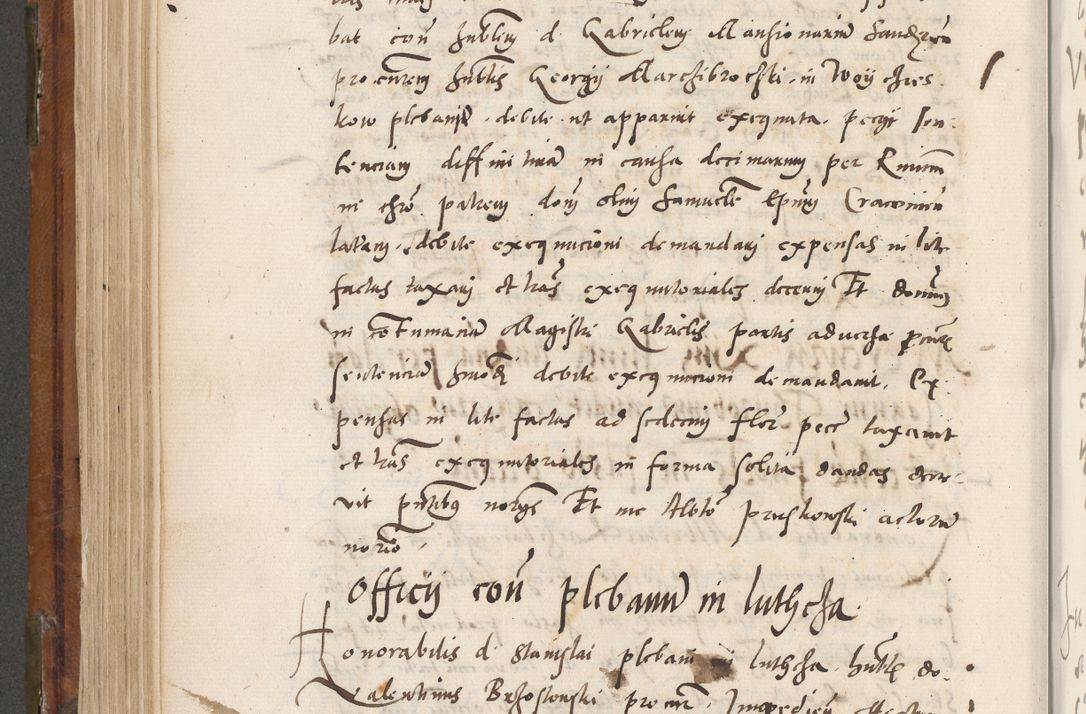 bat coñ hñblem d. Gabrielem Mansionarium Sandzen
procurem hñblis Georgii Marchibrochski in Woyches
kow plebani debite ut apparuit exequuta. petit sen
tenciam diffinitivã in causa decimarum per Rmum
in chrõ patrem dom̃ olim Samuelē Ep̃um Cracovieñ
latam, debite exequucioni demandari expensas in lite
factas taxari et lrãs exequutoriales decerni Et dominus
in cõtumaciã Magistri Gabrielis partis adverse pcuris
sentenciã hmõi debite exequucioni demandavit. Ex
pensas in lite factas ad sedecim flor pecc̃ taxavit
et lrãs exequutoriales in forma solita dandas decre
vit pñtibus nobis Et me Albto Pruskowski actorũ
norio
Officii coñ plebanũ in luthcza
Honorabilis d. Stanislai plebani in luthcza hñblis do.
Valentinus Brzostowski procur̃